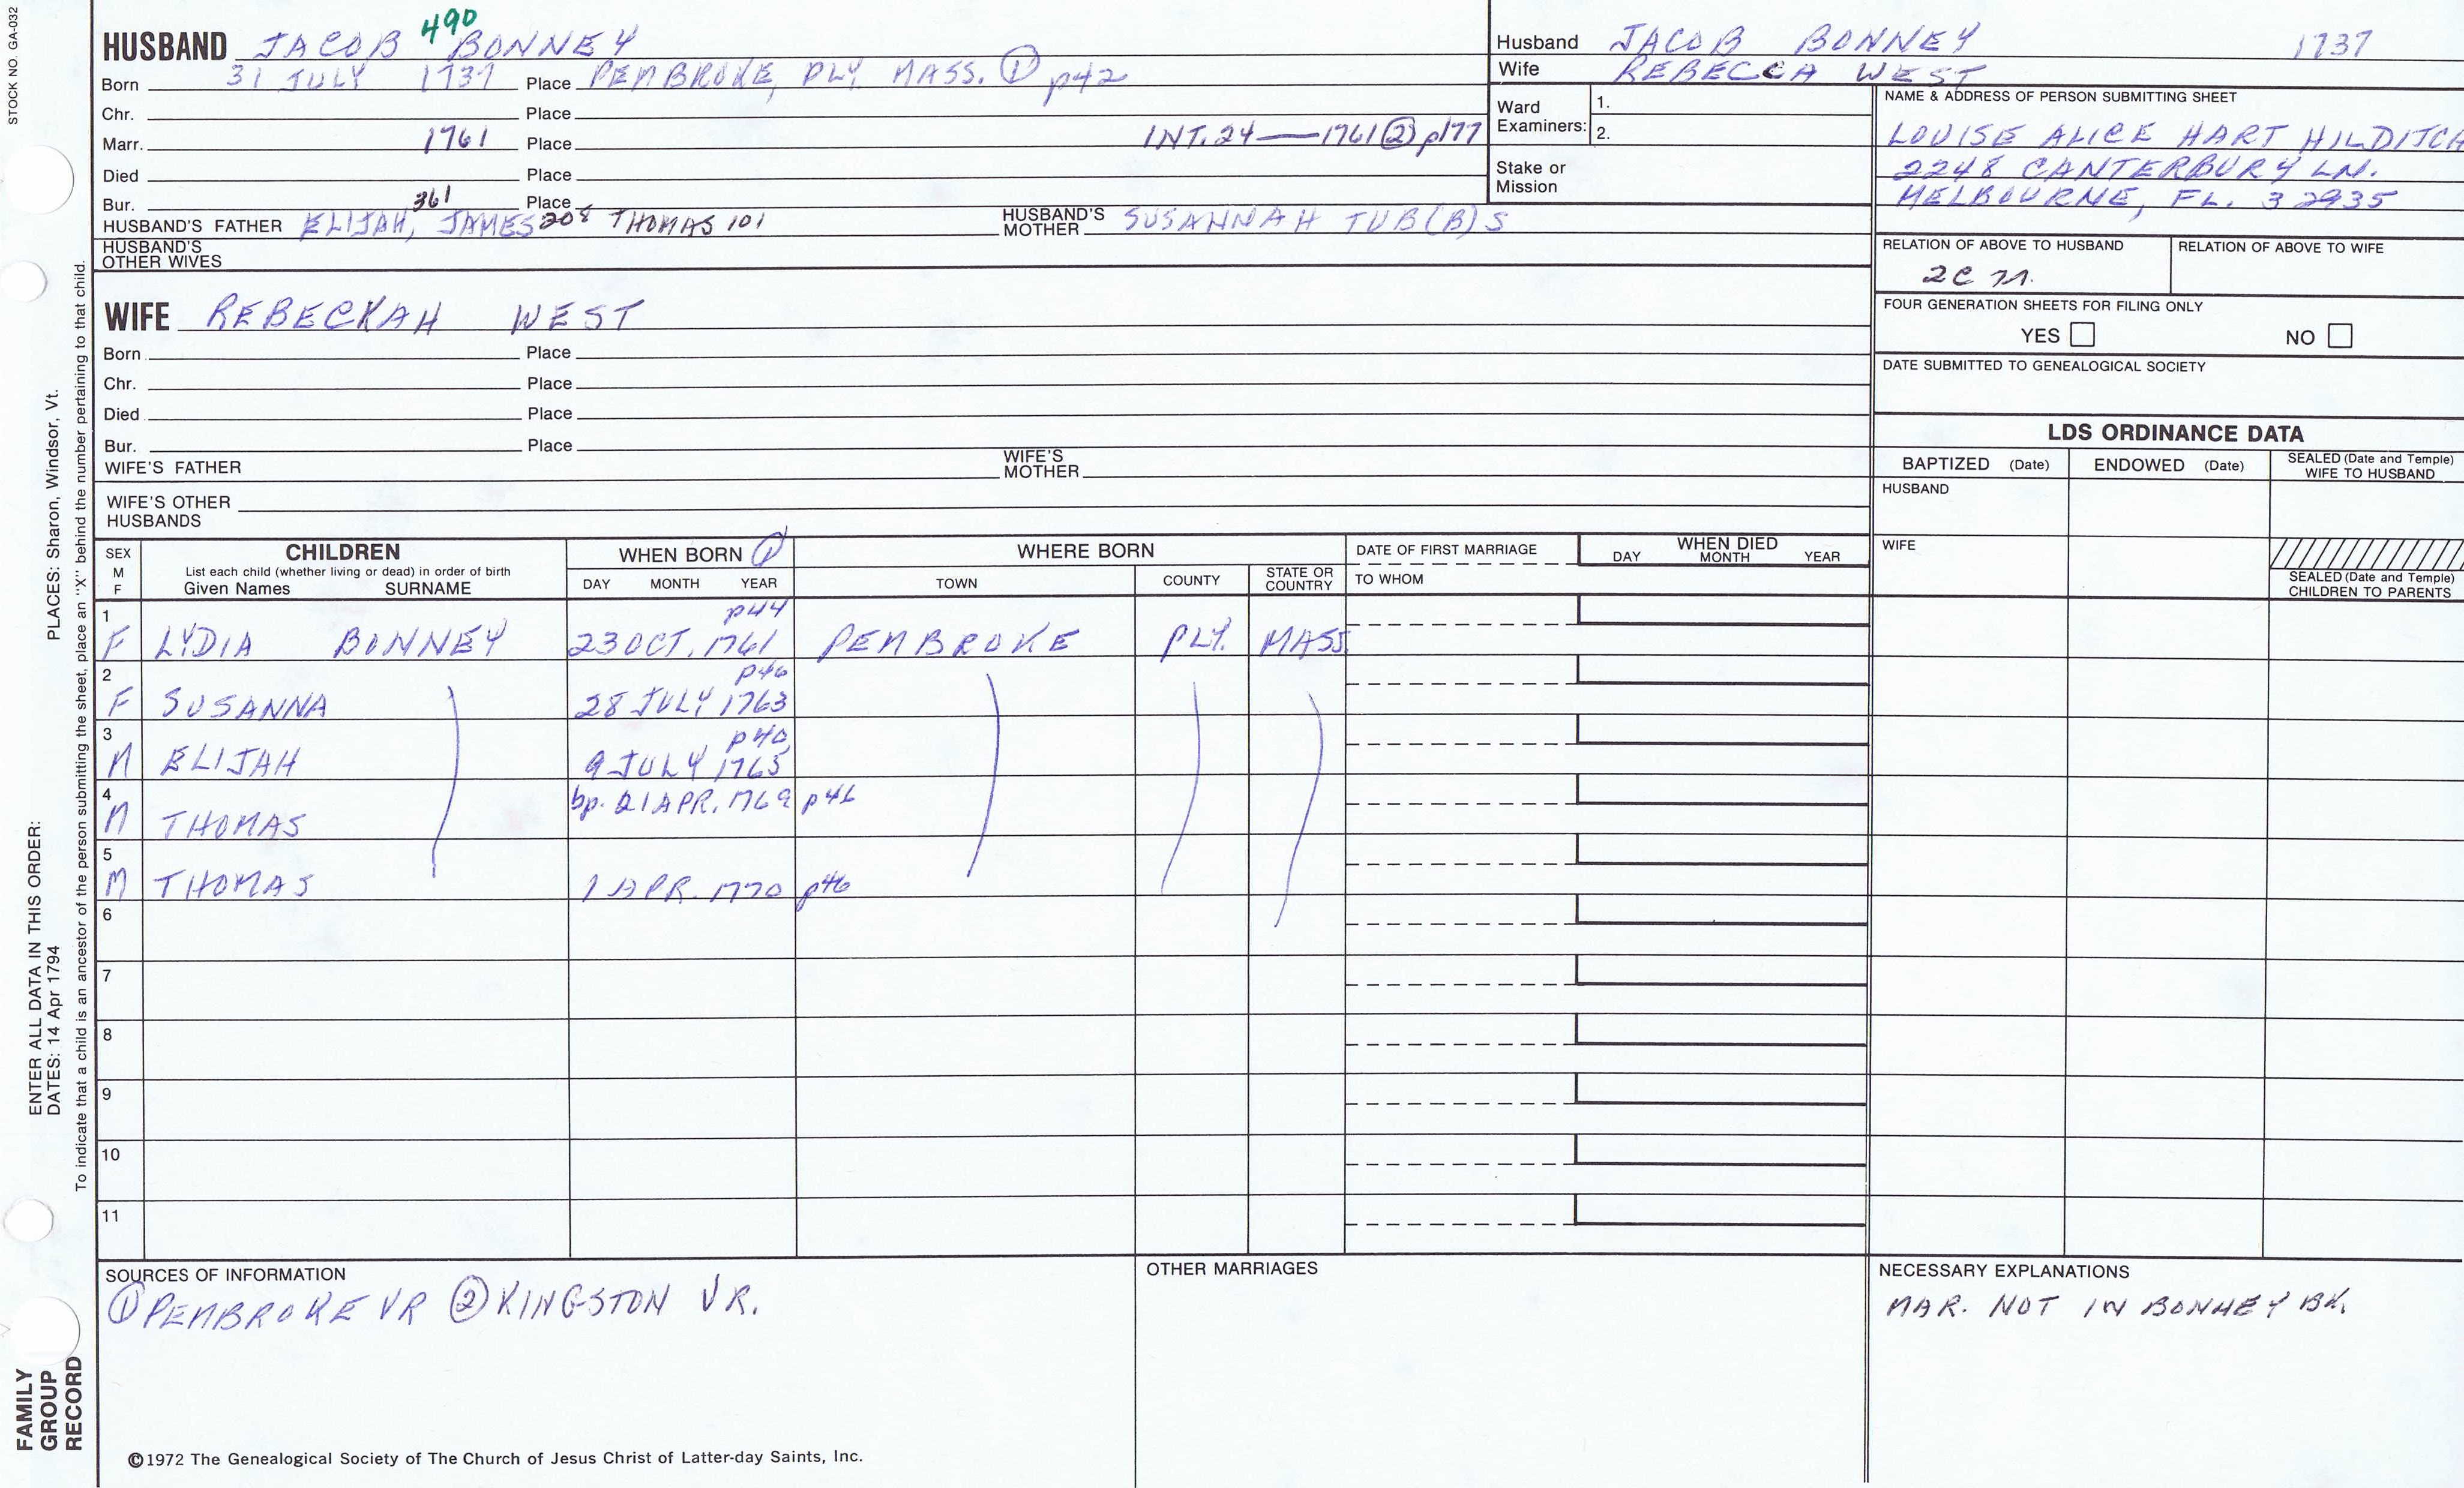 STOCK NO. GA-032
490
HUSBAND JACOB BONNEY
Born 31 JULY 1737 Place PEMBROKE, PLY. MASS. ① p42
Chr. Place
Marr. 1761 Place INT. 24 — 1761 ② p177
Died Place
Bur. Place
361
HUSBAND'S FATHER ELIJAH, JAMES 208 THOMAS 101 HUSBAND'S MOTHER SUSANNAH TUB(B)S
HUSBAND'S OTHER WIVES
WIFE REBECKAH WEST
Born Place
Chr. Place
Died Place
Bur. Place
WIFE'S FATHER WIFE'S MOTHER
WIFE'S OTHER HUSBANDS
Husband JACOB BONNEY 1737
Wife REBECCA WEST
Ward Examiners: 1.
2.
Stake or Mission
NAME & ADDRESS OF PERSON SUBMITTING SHEET
LOUISE ALICE HART HILDITCH
2248 CANTERBURY LN.
MELBOURNE, FL. 32935
RELATION OF ABOVE TO HUSBAND RELATION OF ABOVE TO WIFE
FOUR GENERATION SHEETS FOR FILING ONLY
YES NO
DATE SUBMITTED TO GENEALOGICAL SOCIETY
LDS ORDINANCE DATA
BAPTIZED (Date) ENDOWED (Date) SEALED (Date and Temple) WIFE TO HUSBAND
HUSBAND
WIFE
SEALED (Date and Temple) CHILDREN TO PARENTS
SEX M F CHILDREN WHEN BORN ① WHERE BORN DATE OF FIRST MARRIAGE WHEN DIED
List each child (whether living or dead) in order of birth
Given Names SURNAME DAY MONTH YEAR TOWN COUNTY STATE OR COUNTRY TO WHOM DAY MONTH YEAR
1 p44
F LYDIA BONNEY 23 OCT. 1761 PEMBROKE PLY. MASS.
2 p46
F SUSANNA 28 JULY 1763
3 p40
M ELIJAH 9 JULY 1765
4 bp. 21 APR. 1769 p46
M THOMAS
5
M THOMAS 1 APR. 1770 p46
6
7
8
9
10
11
SOURCES OF INFORMATION
① PEMBROKE VR ② KINGSTON VR.
OTHER MARRIAGES
NECESSARY EXPLANATIONS
MAR. NOT IN BONNEY BK.
©1972 The Genealogical Society of The Church of Jesus Christ of Latter-day Saints, Inc.
FAMILY GROUP RECORD
ENTER ALL DATA IN THIS ORDER:
DATES: 14 Apr 1794
PLACES: Sharon, Windsor, Vt.
To indicate that a child is an ancestor of the person submitting the sheet, place an "X" behind the number pertaining to that child.